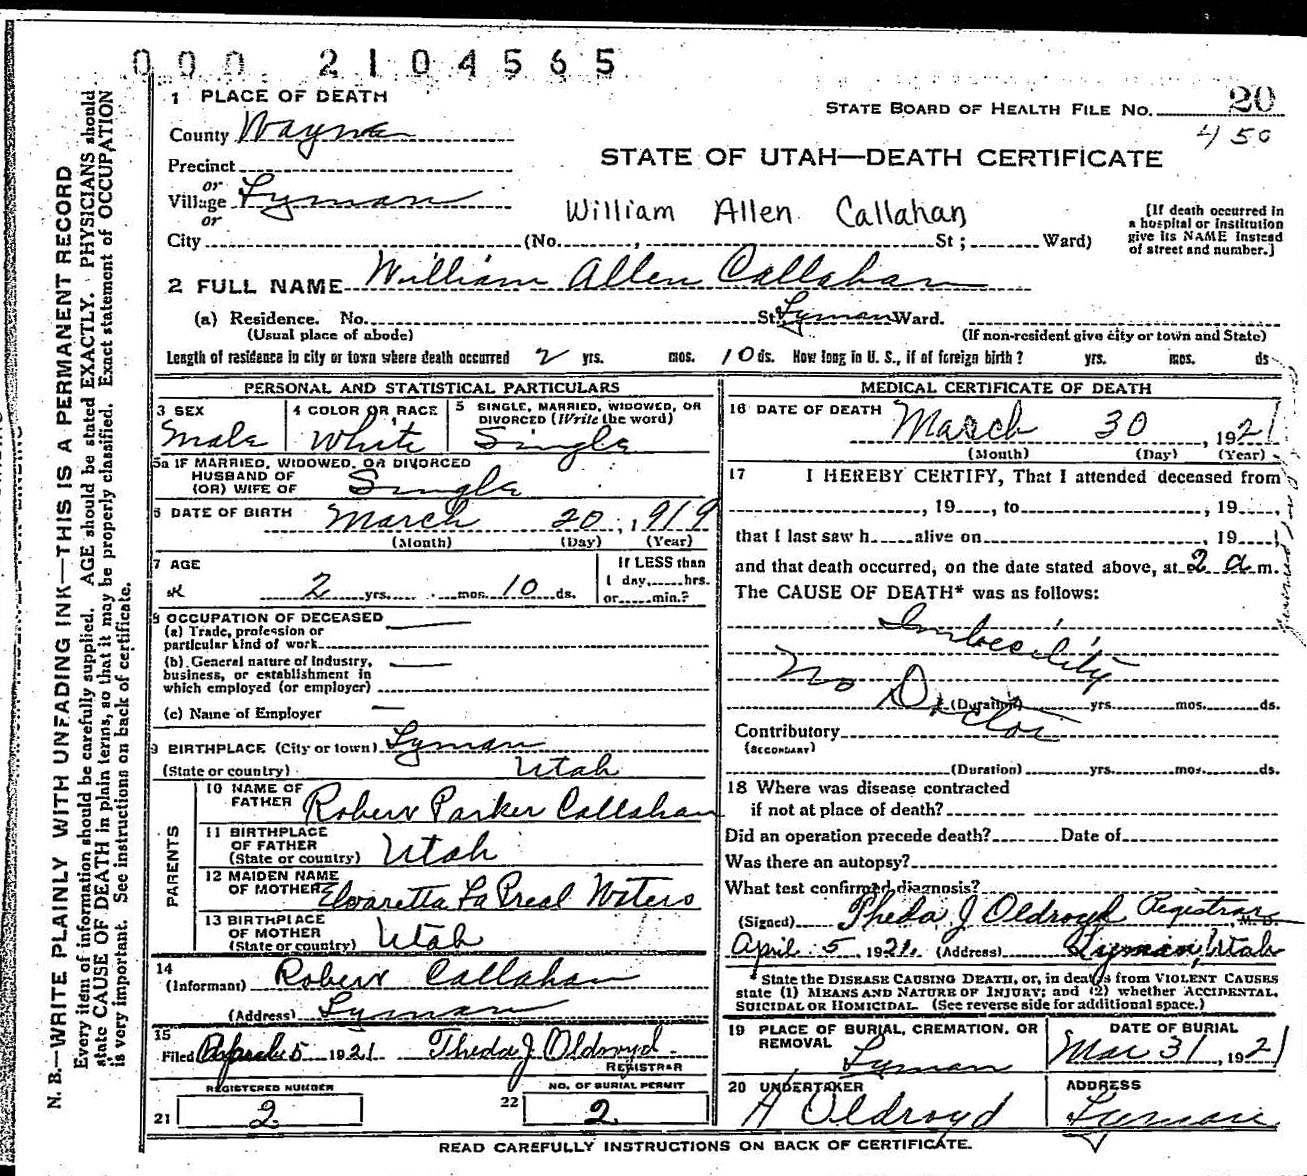 000 2104565
1 PLACE OF DEATH
STATE BOARD OF HEALTH FILE NO. 20
450
County Wayne
STATE OF UTAH—DEATH CERTIFICATE
Precinct
or
Village Lyman
or
William Allen Callahan
[If death occurred in a hospital or institution give its NAME instead of street and number.]
City (No. , St ; Ward)
2 FULL NAME William Allen Callahan
(a) Residence. No. St Lyman Ward.
(Usual place of abode) (If non-resident give city or town and State)
Length of residence in city or town where death occurred 2 yrs. mos. 10 ds. How long in U. S., if of foreign birth? yrs. mos. ds
PERSONAL AND STATISTICAL PARTICULARS
3 SEX Male
4 COLOR OR RACE White
5 SINGLE, MARRIED, WIDOWED, OR DIVORCED (Write the word) Single
5a IF MARRIED, WIDOWED, OR DIVORCED
HUSBAND OF
(OR) WIFE OF Single
6 DATE OF BIRTH March 20, 1919
(Month) (Day) (Year)
7 AGE
2 yrs. mos. 10 ds.
If LESS than
1 day, hrs.
or min.?
8 OCCUPATION OF DECEASED
(a) Trade, profession or
particular kind of work
(b) General nature of Industry,
business, or establishment in
which employed (or employer)
(c) Name of Employer
9 BIRTHPLACE (City or town) Lyman
(State or country) Utah
PARENTS
10 NAME OF FATHER Robert Parker Callahan
11 BIRTHPLACE OF FATHER (State or country) Utah
12 MAIDEN NAME OF MOTHER Elvaretta La Preal
13 BIRTHPLACE OF MOTHER (State or country) Utah
14
(Informant) Robert Callahan
(Address) Lyman
15
Filed April 5 1921 Theda J Oldroyd
REGISTRAR
REGISTERED NUMBER
21 2
NO. OF BURIAL PERMIT
22 2
MEDICAL CERTIFICATE OF DEATH
16 DATE OF DEATH March 30, 1921
(Month) (Day) (Year)
17 I HEREBY CERTIFY, That I attended deceased from
, 19 , to , 19 ,
that I last saw h alive on , 19 ,
and that death occurred, on the date stated above, at 2 a m.
The CAUSE OF DEATH* was as follows:
Imbecility
No Doctor
(Duration) yrs. mos. ds.
Contributory
(SECONDARY)
(Duration) yrs. mos. ds.
18 Where was disease contracted
if not at place of death?
Did an operation precede death? Date of
Was there an autopsy?
What test confirmed diagnosis?
(Signed) Theda J Oldroyd Registrar M. D.
April 5 1921. (Address) Lyman, Utah
State the DISEASE CAUSING DEATH, or, in deaths from VIOLENT CAUSES
state (1) MEANS AND NATURE OF INJURY; and (2) whether ACCIDENTAL,
SUICIDAL OR HOMICIDAL. (See reverse side for additional space.)
19 PLACE OF BURIAL, CREMATION, OR REMOVAL Lyman
DATE OF BURIAL
Mar 31, 1921
20 UNDERTAKER
A Oldroyd
ADDRESS
Lyman
READ CAREFULLY INSTRUCTIONS ON BACK OF CERTIFICATE.
N. B.—WRITE PLAINLY WITH UNFADING INK—THIS IS A PERMANENT RECORD
Every item of information should be carefully supplied. AGE should be stated EXACTLY. PHYSICIANS should
state CAUSE OF DEATH in plain terms, so that it may be properly classified. Exact statement of OCCUPATION
is very important. See instructions on back of certificate.